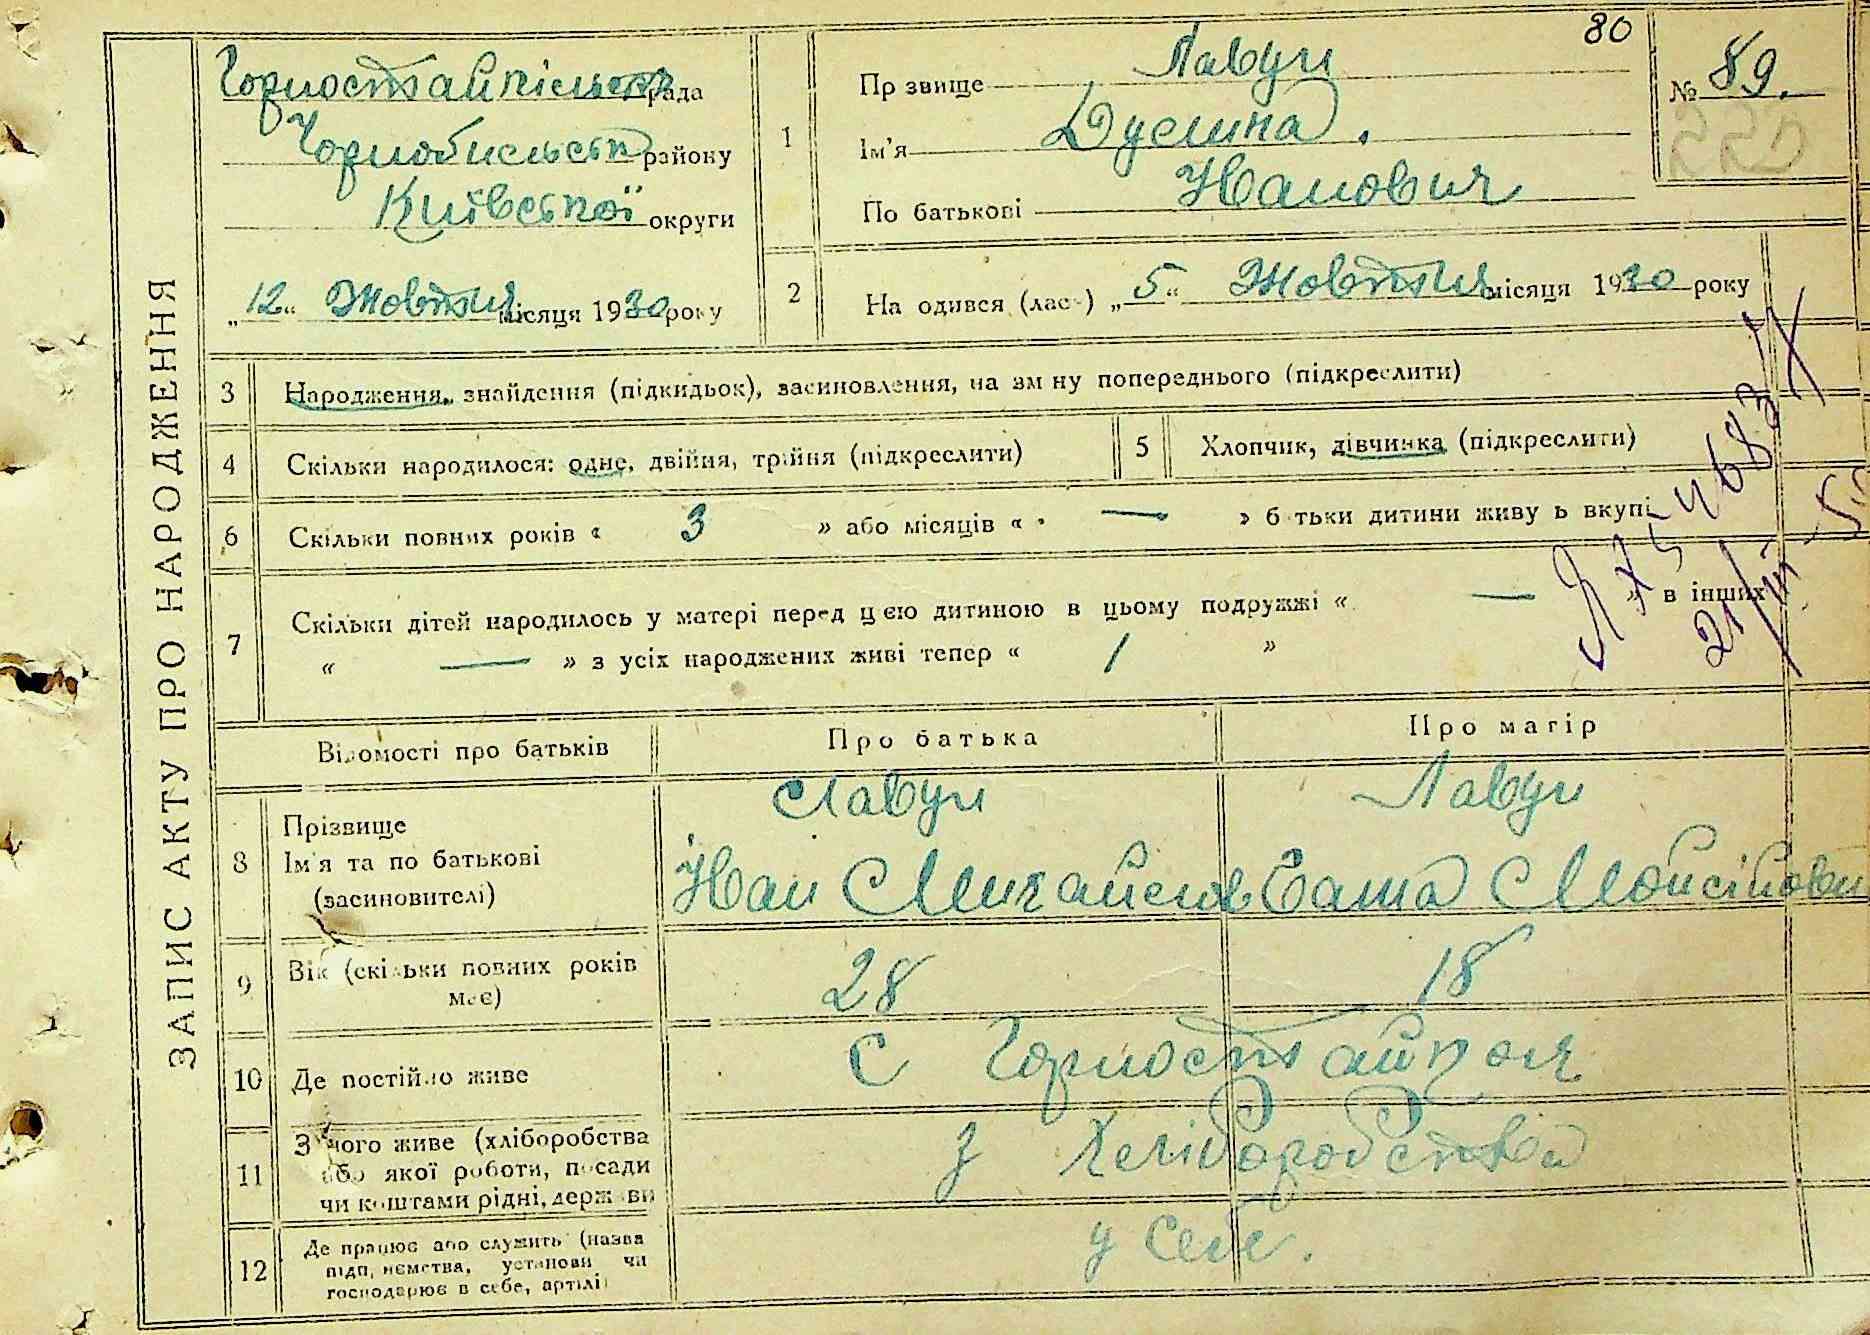 80
ЗАПИС АКТУ ПРО НАРОДЖЕННЯ
Горностайпільська рада
Чорнобильськ району
Київської округи
„12“ Жовтня місяця 1930 року
1
Пр звище Лавун
Ім'я
По батькові Иванович
№ 89.
220
2 На одився (лас ) „5“ Жовтня місяця 1930 року
3 Народження, знайдення (підкидьок), засиновлення, на зм ну попереднього (підкреслити)
4 Скільки народилося: одне, двійня, трійня (підкреслити)
5 Хлопчик, дівчинка (підкреслити)
6 Скільки повних років « 3 » або місяців « — » б тьки дитини живу ь вкупі
7 Скільки дітей народилось у матері перед цією дитиною в цьому подружжі « — » в інших
« — » з усіх народжених живі тепер « 1 »
Відомості про батьків
Про батька
Про матір
8 Прізвище
Ім'я та по батькові
(засиновителі)
Лавун
Иван Михайлов
Лавун
Мойсійовн
9 Вік (скільки повних років має)
28
18
10 Де постійно живе
С Горностайполя
11 З чого живе (хліборобства
або якої роботи, посади
чи коштами рідні, держави
з Хліборобства
12 Де працює або служить (назва
підп, немства, установи чи
господарює в себе, артілі)
у себе.
21/III-